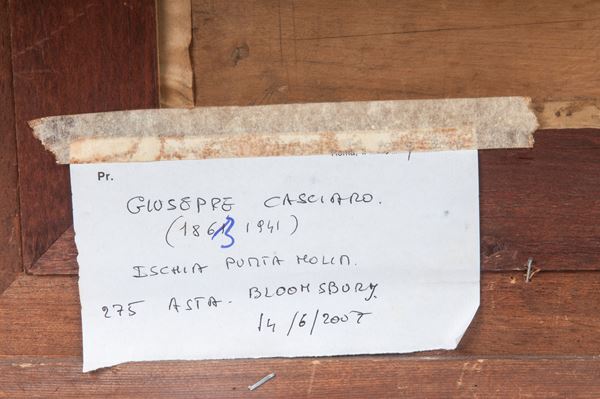 Pr.
GIUSEPPE CASCIARO.
(1863 1941)
ISCHIA PUNTA MOLIN.
275 ASTA. BLOOMSBURY.
14/6/2007